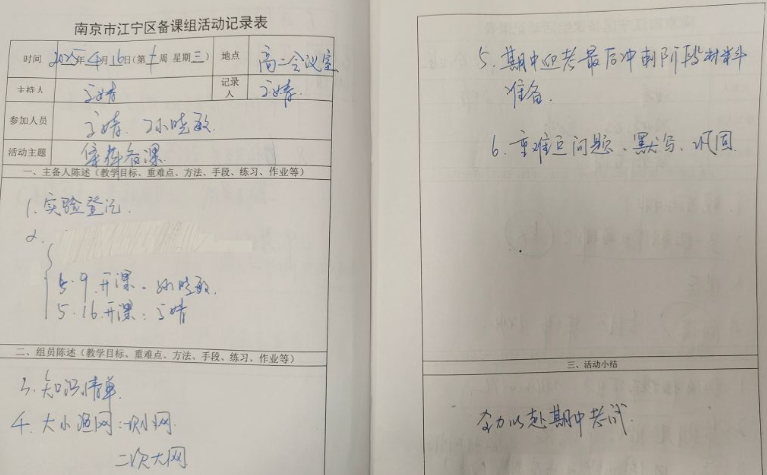 南京市江宁区备课组活动记录表
时间 2025年4月16日(第十周 星期三) 地点 高二会议室
主持人 王婧 记录人 王婧
参加人员 王婧 孙晓敏
活动主题 集体备课
一、主备人陈述（教学目标、重难点、方法、手段、练习、作业等）
1. 实验登记
2.
5.9 开课：孙晓敏
5.16 开课：王婧
二、组员陈述（教学目标、重难点、方法、手段、练习、作业等）
3. 知识清单
4. 大小过网：一次小网
二次大网
5. 期中迎考最后冲刺阶段材料
准备.
6. 重难点问题、默写、巩固
三、活动小结
全力以赴期中考试